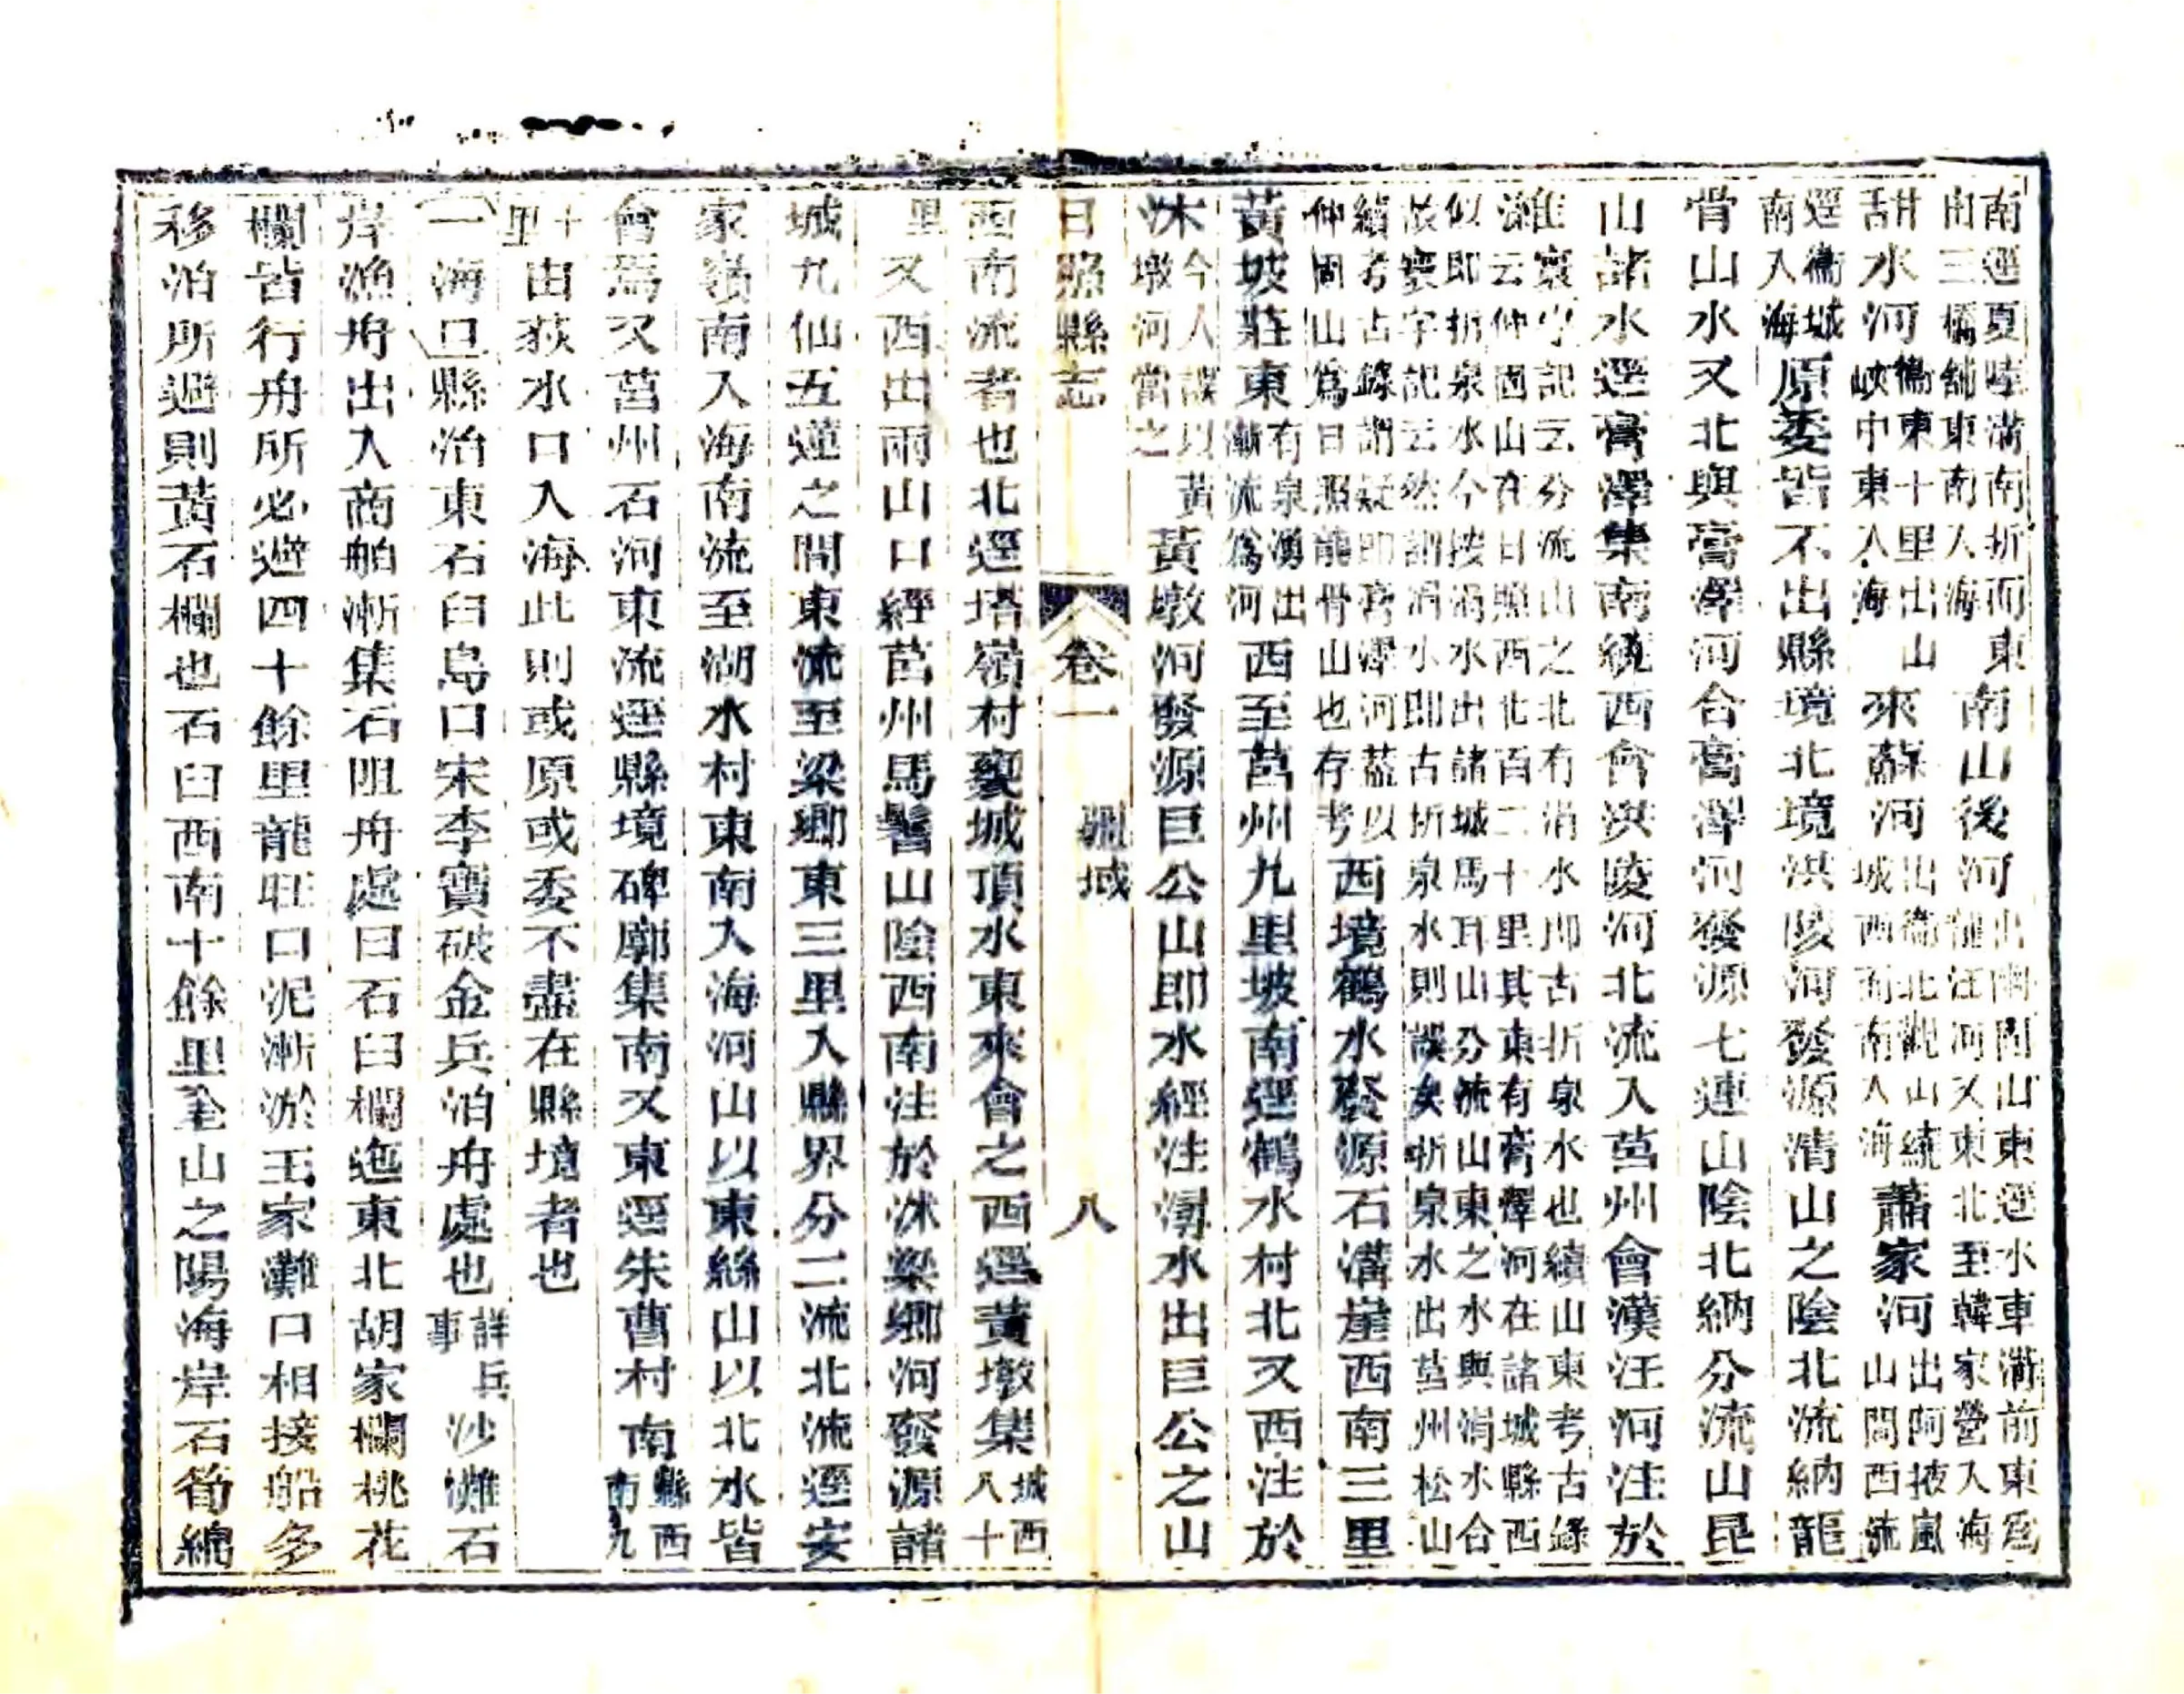 南逕夏陸溝南折而東由三橋鋪東南入海南山後河出南閣山東逕水車溝前東為龍汪河又東北至韓家營入海
甜水河衞東十里出山峽中東入海來蘇河出衞北觀山繞城西而南入海蕭家河出阿掖嵐山間西流
逕衞城南入海原委皆不出縣境北境洪陵河發源清山之陰北流納龍
骨山水又北與膏澤河合膏澤河發源七連山陰北納分流山昆
山諸水逕膏澤集南繞西會洪陵河北流入莒州會漢汪河注於
惟寰宇記云分流山之北有涓水即古折泉水也續山東考古錄濰云仲固山在日照西北百二十里其東有膏澤河在諸城縣西
似即折泉水今按涓水出諸城馬耳山分流山東之水與涓水合故寰宇記云然謂涓水即古折泉水則誤矣折泉水出莒州松山
續考古錄謂疑即膏澤河蓋以仲固山為日照龍骨山也存考西境鶴水發源石溝崖西南三里
黃坡莊東有泉湧出漸流為河西至莒州九里坡南逕鶴水村北又西注於
沭今人誤以黃墩河當之黃墩河發源巨公山即水經注潯水出巨公之山
日照縣志 卷一 疆域 八
西南流者也北逕塔嶺村襲城頂水東來會之西逕黃墩集城西八十
里又西出兩山口經莒州馬鬐山陰西南注於沭梁鄉河發源諸
城九仙五蓮之間東流至梁鄉東三里入縣界分二流北流逕安
家嶺南入海南流至湖水村東南入海河山以東絲山以北水皆
會焉又莒州石河東流逕縣境碑廓集南又東逕朱曹村南縣西南九
十里由荻水口入海此則或原或委不盡在縣境者也
一海口縣治東石臼島口宋李寶破金兵泊舟處也詳兵事沙灘石
岸漁舟出入商舶漸集石阻舟處曰石臼欄迤東北胡家欄桃花
欄皆行舟所必避四十餘里龍旺口泥漸淤王家灘口相接船多
移泊所避則黃石欄也石臼西南十餘里奎山之陽海岸石筍綿